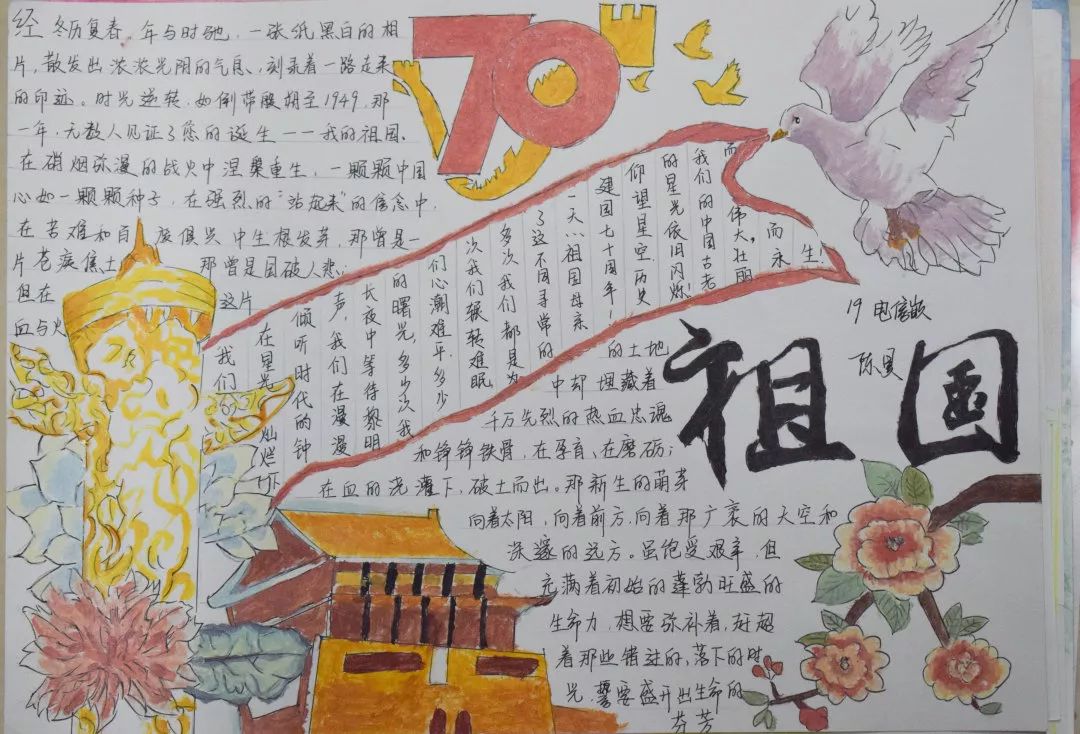 经冬历复春，年与时驰，一张纸黑白的相
片，散发出浓浓光阴的气息，刻录着一路走来
的印迹。时光逆转，如倒带般拥至1949，那
一年，无数人见证了您的诞生——我的祖国。
在硝烟弥漫的战火中涅槃重生，一颗颗中国
心如一颗颗种子，在强烈的“站起来”的信念中，
在苦难和百废俱兴中生根发芽，那曾是一
片苍痍焦土 那曾是国破人悲；
但在 这片
血与火
的土地
中却埋藏着
千万先烈的热血忠魂
和铮铮铁骨，在孕育、在磨砺；
在血的浇灌下，破土而出。那新生的萌芽
向着太阳，向着前方，向着那广袤的天空和
深邃的远方。虽饱受艰辛，但
充满着初始的蓬勃旺盛的
生命力，想要弥补着，赶超
着那些错过的，落下的时
光，誓要盛开出生命的
芬芳
70
我们
在星光灿烂下
倾听时代的钟
声，我们在漫漫
长夜中等待黎明
的曙光，多少次我
们心潮难平，多少
次我们辗转难眠
多次我们都是为
了这不同寻常的
一天…祖国母亲
建国七十周年！
仰望星空，历史
的星光依旧闪烁！
我们的中国古老
而伟大，壮丽
而永生！
19 电信
陈
祖国